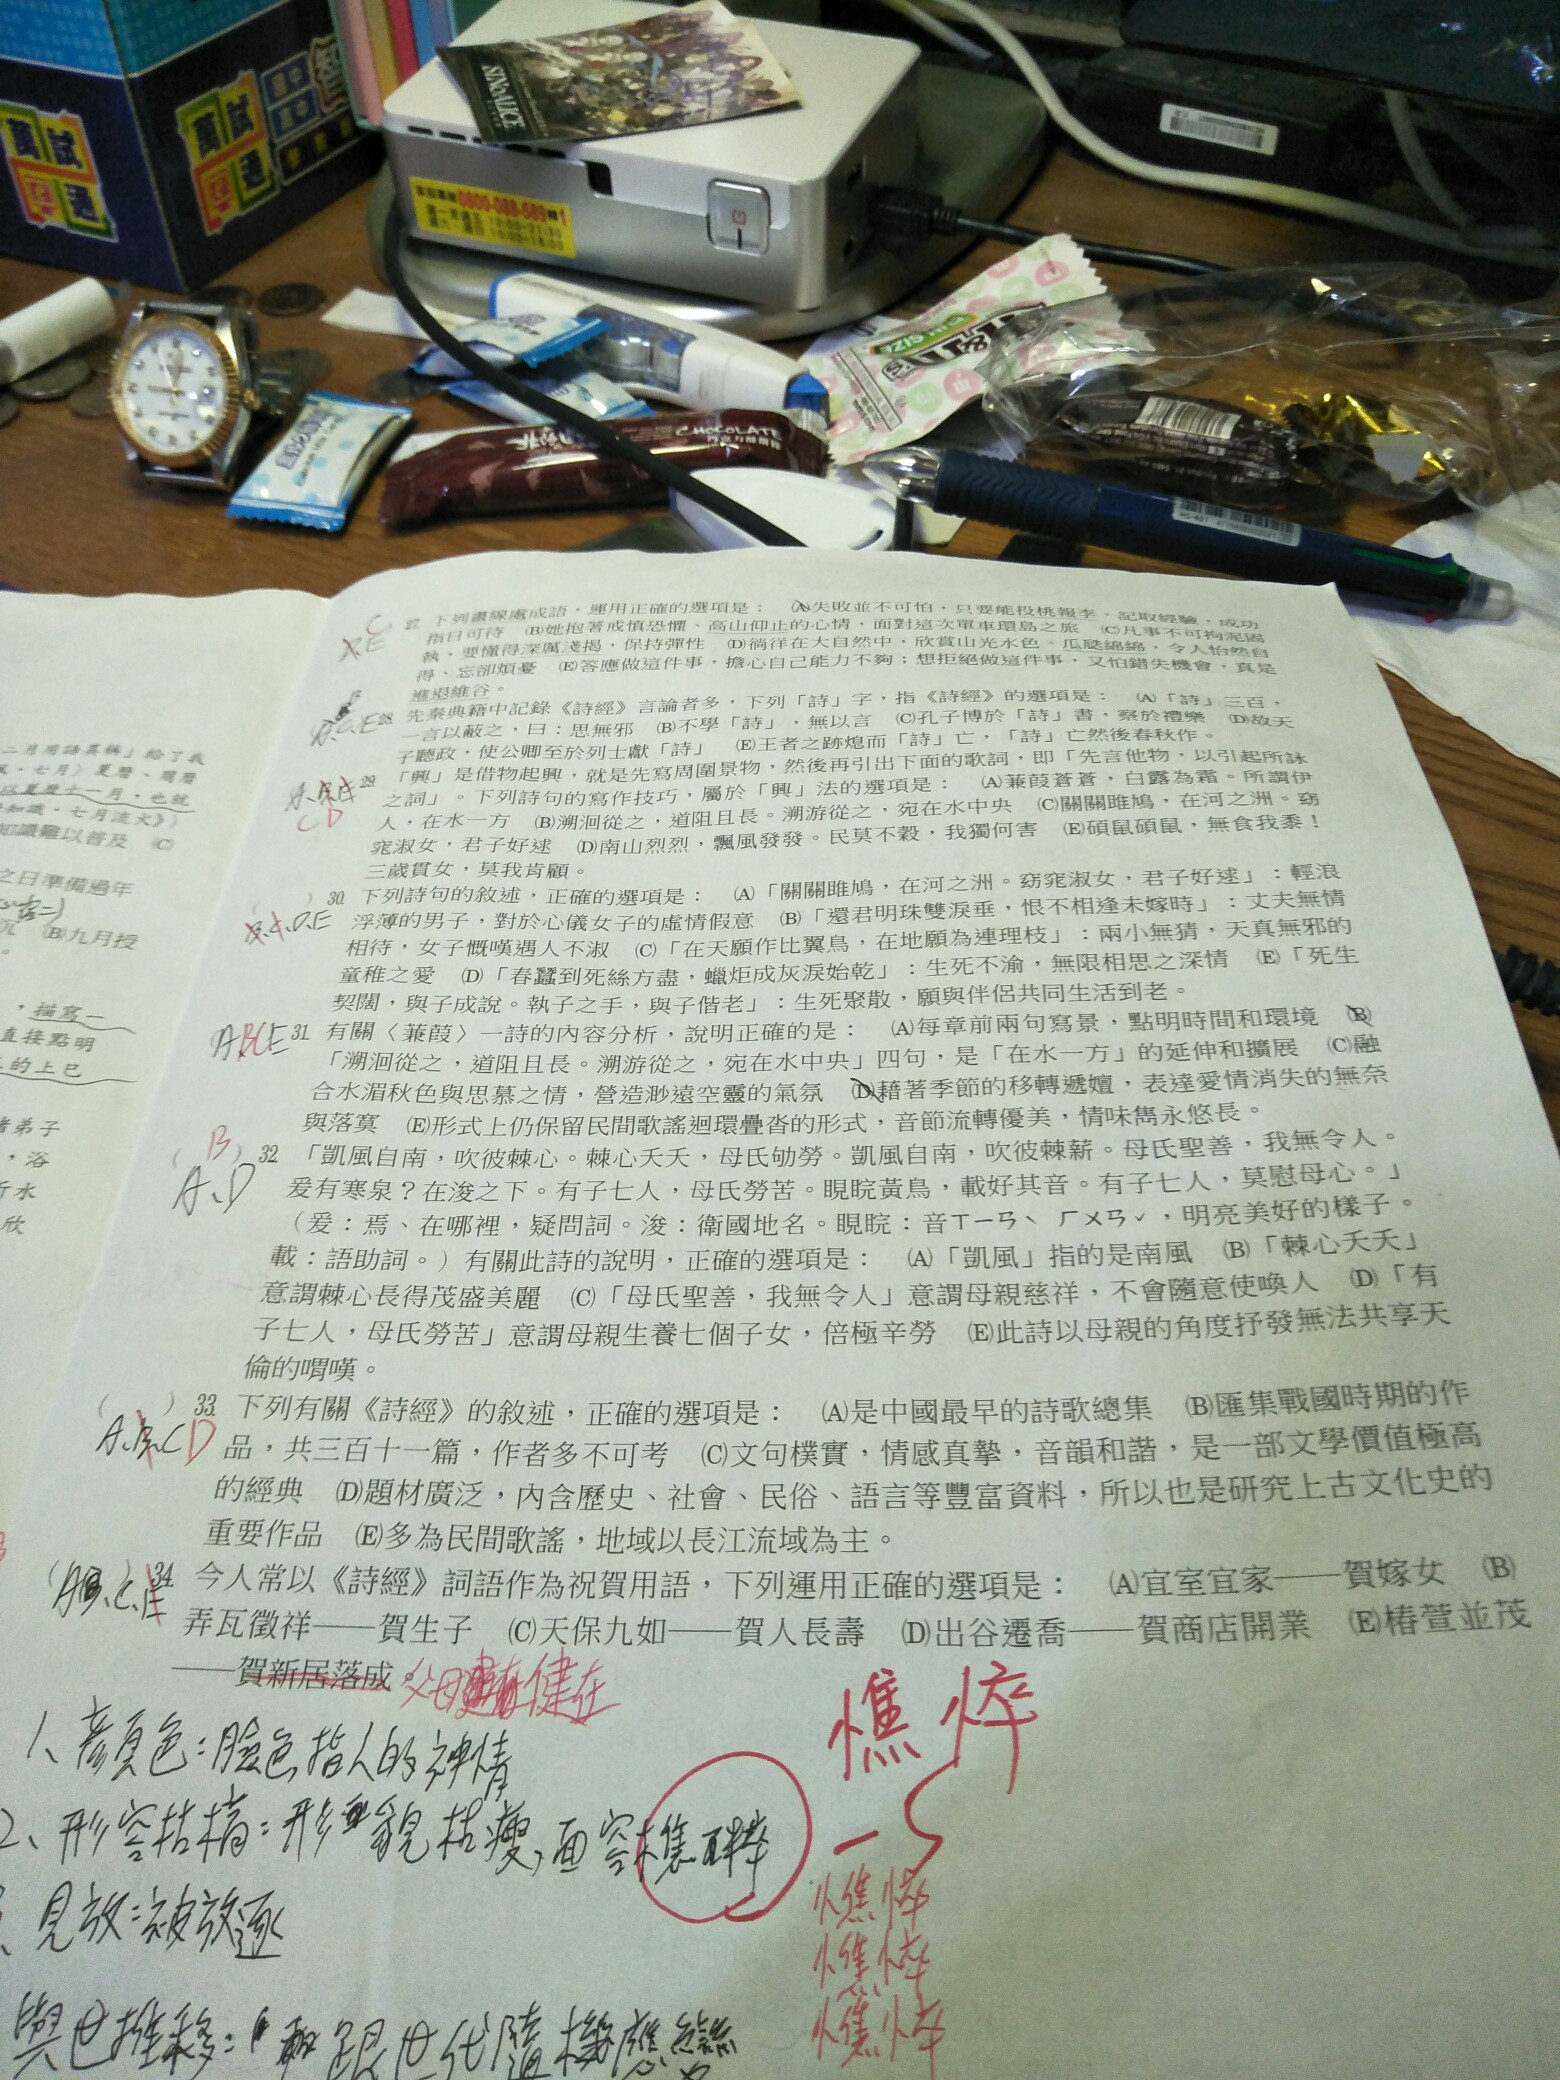 萬試通
萬試通
SINoALICE
客服專線0800-088-589轉1
週一至週五 10:00~21:30
週六、週日 10:00~18:00
CHOCOLATE
FUN SIZE
27. 下列畫線處成語，運用正確的選項是： (A)失敗並不可怕，只要能投桃報李、記取經驗，成功
指日可待 (B)她抱著戒慎恐懼、高山仰止的心情，面對這次單車環島之旅 (C)凡事不可拘泥固
執，要懂得深厲淺揭，保持彈性 (D)徜徉在大自然中，欣賞山光水色、瓜瓞綿綿，令人怡然自
得，忘卻煩憂 (E)答應做這件事，擔心自己能力不夠；想拒絕做這件事，又怕錯失機會，真是
進退維谷。
28. 先秦典籍中記錄《詩經》言論者多，下列「詩」字，指《詩經》的選項是： (A)「詩」三百，
一言以蔽之，曰：思無邪 (B)不學「詩」，無以言 (C)孔子博於「詩」書，察於禮樂 (D)故天
子聽政，使公卿至於列士獻「詩」 (E)王者之跡熄而「詩」亡，「詩」亡然後春秋作。
29. 「興」是借物起興，就是先寫周圍景物，然後再引出下面的歌詞，即「先言他物，以引起所詠
之詞」。下列詩句的寫作技巧，屬於「興」法的選項是： (A)蒹葭蒼蒼，白露為霜。所謂伊
人，在水一方 (B)溯洄從之，道阻且長。溯游從之，宛在水中央 (C)關關雎鳩，在河之洲。窈
窕淑女，君子好逑 (D)南山烈烈，飄風發發。民莫不穀，我獨何害 (E)碩鼠碩鼠，無食我黍！
三歲貫女，莫我肯顧。
( ) 30. 下列詩句的敘述，正確的選項是： (A)「關關雎鳩，在河之洲。窈窕淑女，君子好逑」：輕浪
浮薄的男子，對於心儀女子的虛情假意 (B)「還君明珠雙淚垂，恨不相逢未嫁時」：丈夫無情
相待，女子慨嘆遇人不淑 (C)「在天願作比翼鳥，在地願為連理枝」：兩小無猜，天真無邪的
童稚之愛 (D)「春蠶到死絲方盡，蠟炬成灰淚始乾」：生死不渝，無限相思之深情 (E)「死生
契闊，與子成說。執子之手，與子偕老」：生死聚散，願與伴侶共同生活到老。
ABCE 31. 有關〈蒹葭〉一詩的內容分析，說明正確的是： (A)每章前兩句寫景，點明時間和環境 (B)
「溯洄從之，道阻且長。溯游從之，宛在水中央」四句，是「在水一方」的延伸和擴展 (C)融
合水湄秋色與思慕之情，營造渺遠空靈的氣氛 (D)藉著季節的移轉遞嬗，表達愛情消失的無奈
與落寞 (E)形式上仍保留民間歌謠迴環疊沓的形式，音節流轉優美，情味雋永悠長。
( B ) 32. 「凱風自南，吹彼棘心。棘心夭夭，母氏劬勞。凱風自南，吹彼棘薪。母氏聖善，我無令人。
A、D
爰有寒泉？在浚之下。有子七人，母氏勞苦。睍睆黃鳥，載好其音。有子七人，莫慰母心。」
（爰：焉、在哪裡，疑問詞。浚：衛國地名。睍睆：音ㄒㄧㄢˋ ㄏㄨㄢˇ，明亮美好的樣子。
載：語助詞。）有關此詩的說明，正確的選項是： (A)「凱風」指的是南風 (B)「棘心夭夭」
意謂棘心長得茂盛美麗 (C)「母氏聖善，我無令人」意謂母親慈祥，不會隨意使喚人 (D)「有
子七人，母氏勞苦」意謂母親生養七個子女，倍極辛勞 (E)此詩以母親的角度抒發無法共享天
倫的喟嘆。
( ) 33. 下列有關《詩經》的敘述，正確的選項是： (A)是中國最早的詩歌總集 (B)匯集戰國時期的作
A、B、C D
品，共三百十一篇，作者多不可考 (C)文句樸實，情感真摯，音韻和諧，是一部文學價值極高
的經典 (D)題材廣泛，內含歷史、社會、民俗、語言等豐富資料，所以也是研究上古文化史的
重要作品 (E)多為民間歌謠，地域以長江流域為主。
34. 今人常以《詩經》詞語作為祝賀用語，下列運用正確的選項是： (A)宜室宜家——賀嫁女 (B)
弄瓦徵祥——賀生子 (C)天保九如——賀人長壽 (D)出谷遷喬——賀商店開業 (E)椿萱並茂
——賀新居落成。父母健在
1、顏色：臉色,指人的神情
2、形容枯槁：形貌枯瘦,面容
見放：被放逐
與世推移：跟世代隨機應變
憔悴
憔悴
憔悴
憔悴
二月用語異稱」給了我
風・七月〉夏曆、周曆
以夏曆十一月，也就
知識・七月流火》）
知識難以普及 (C)
之日準備過年
(B)九月授
，描寫一
直接點明
的上巳
諸弟子
，浴
沂水
欣